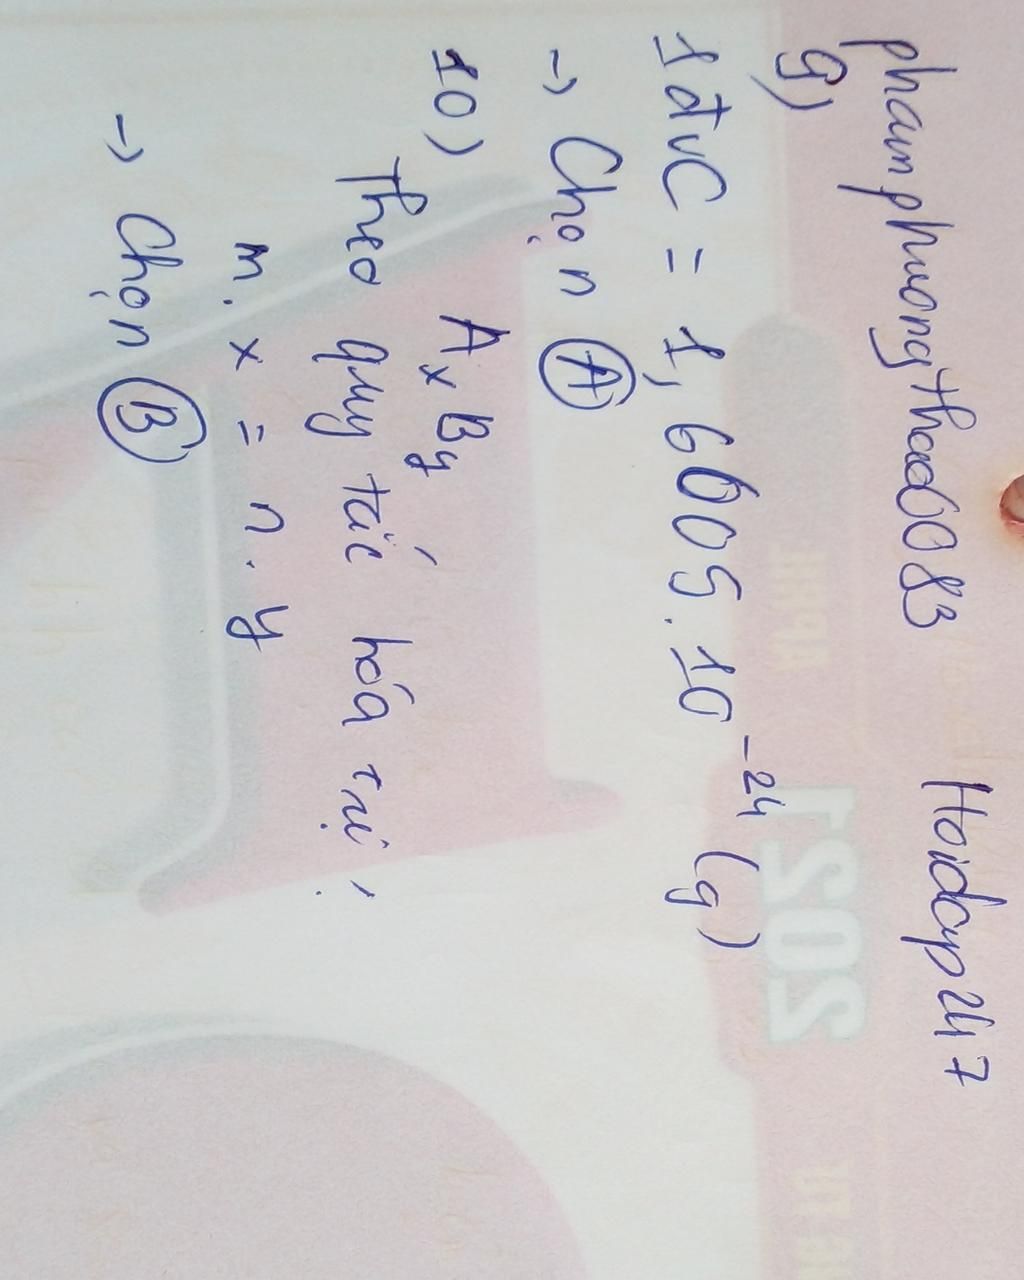 phamphuongthao60083 Hoidap247
9)
1đvC = 1,6605.10⁻²⁴ (g)
→ Chọn A
10) AxBy
Theo quy tắc hóa trị,
m.x = n.y
→ Chọn B
2021